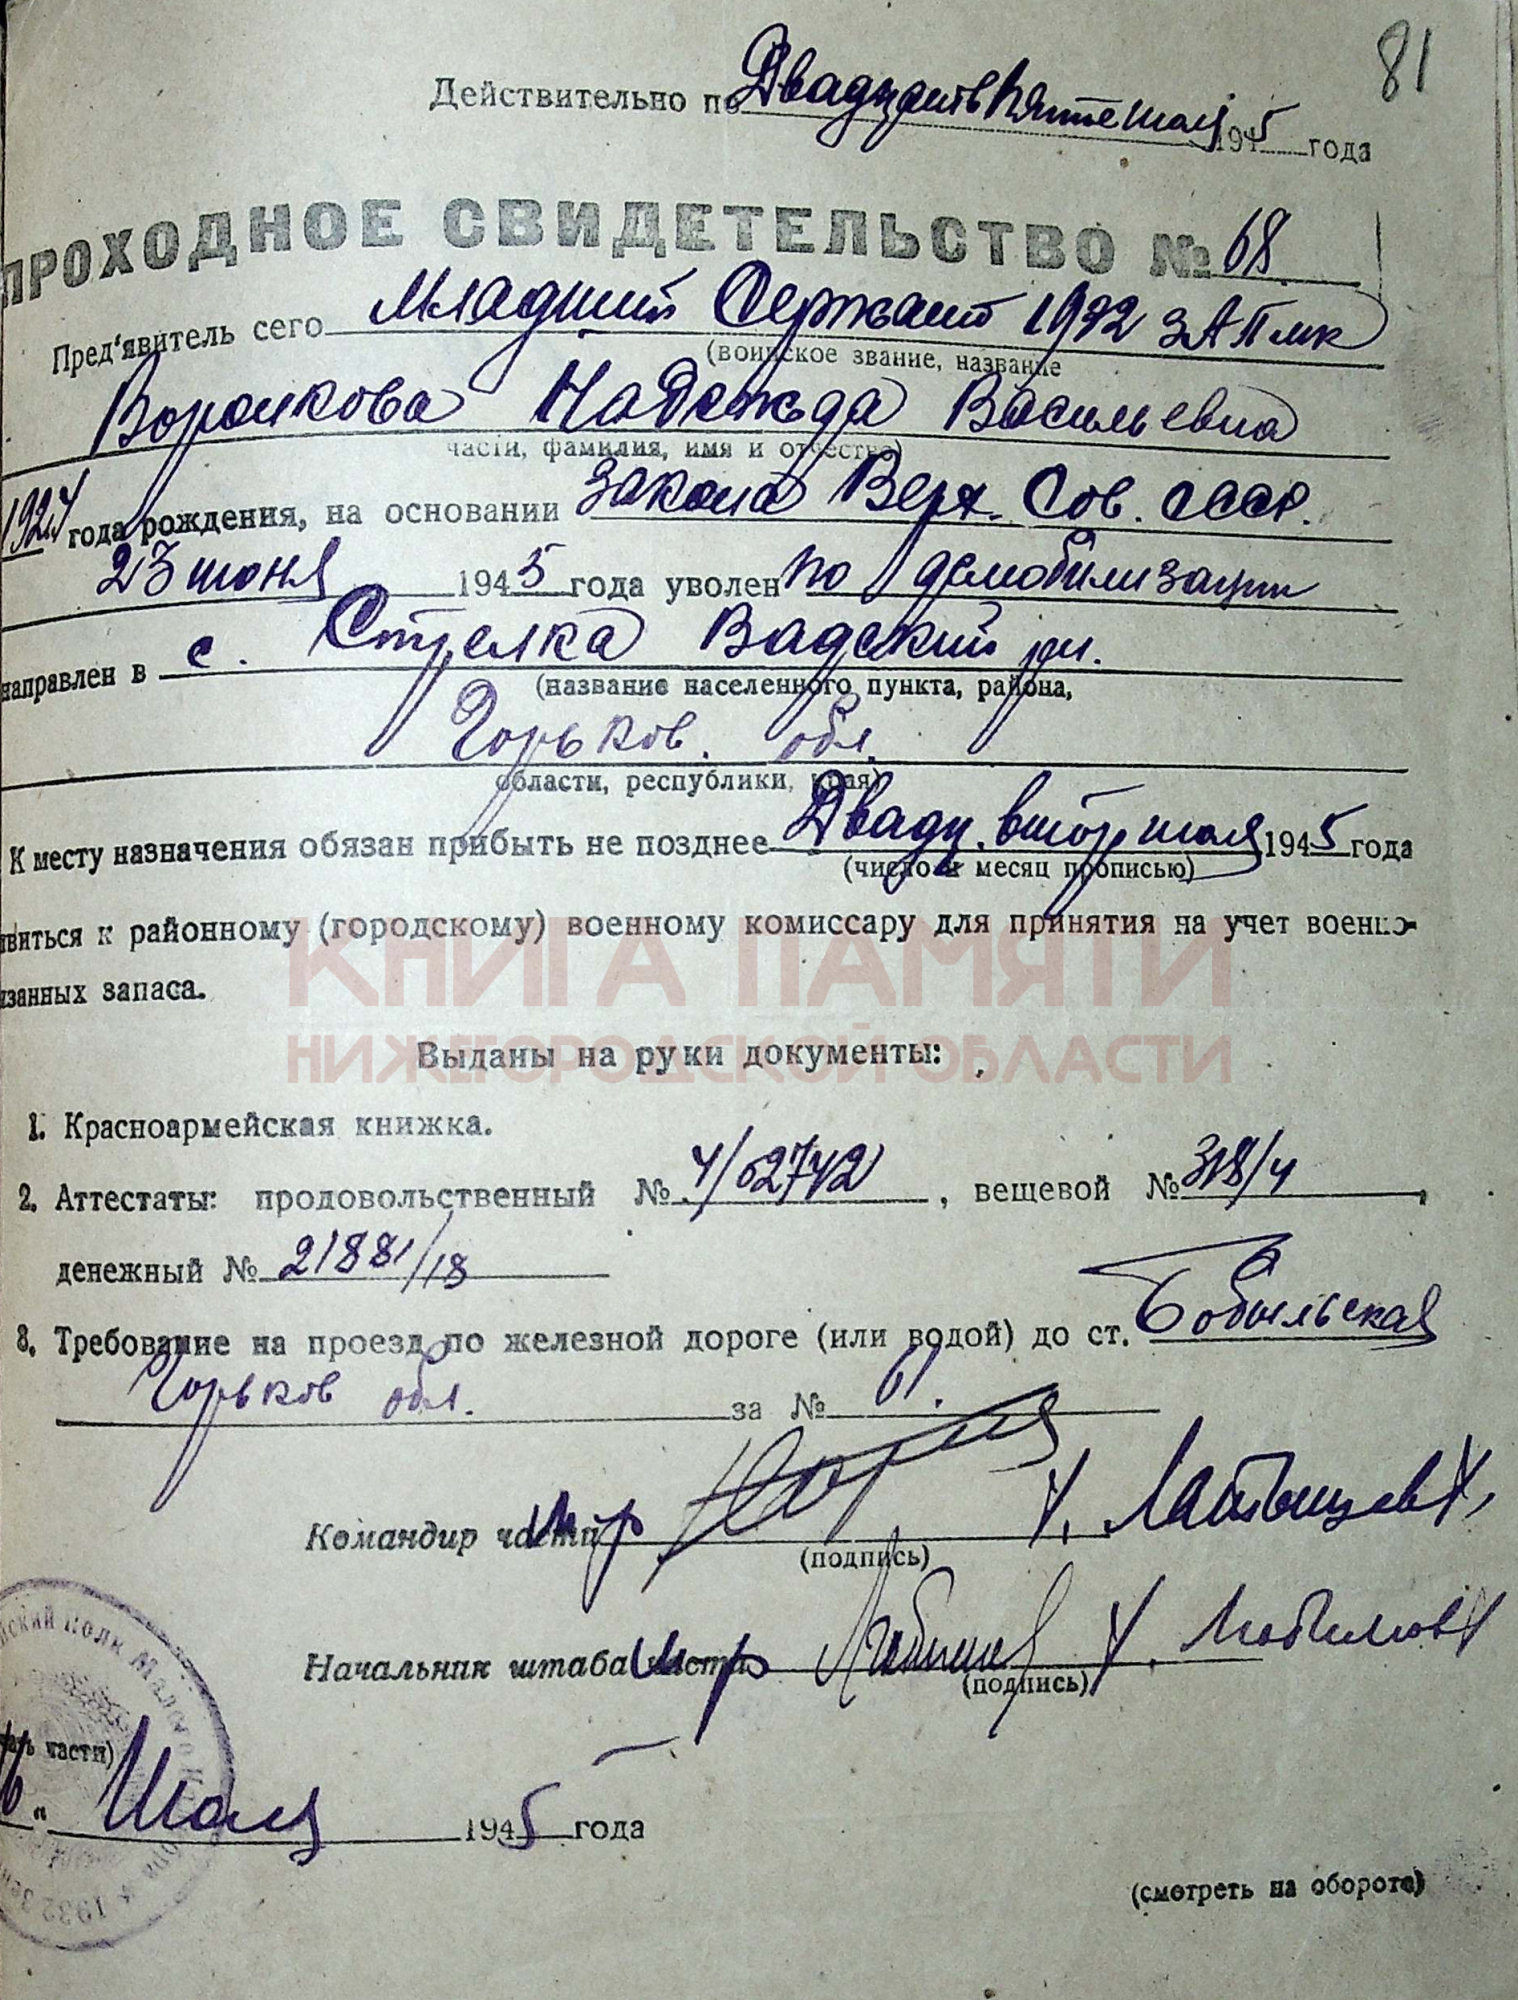 81
Действительно по Двадцать Пятое июля 1945 года
ПРОХОДНОЕ СВИДЕТЕЛЬСТВО № 68
Пред'явитель сего Младший Сержант 1932 ЗАП мк
(воинское звание, название
Воронкова Надежда Васильевна
части, фамилия, имя и отчество)
1924 года рождения, на основании Закона Верх. Сов. СССР.
23 июня 1945 года уволен по демобилизации
направлен в с. Стрелка Вадский рн.
(название населенного пункта, района,
Горьков. обл.
области, республики, края)
К месту назначения обязан прибыть не позднее Двадц. втор июля 1945 года
(число и месяц прописью)
явиться к районному (городскому) военному комиссару для принятия на учет военно-
язанных запаса.
КНИГА ПАМЯТИ
НИЖЕГОРОДСКОЙ ОБЛАСТИ
Выданы на руки документы:
1. Красноармейская книжка.
2. Аттестаты: продовольственный № 4/62742, вещевой № 318/4,
денежный № 21881/18
3. Требование на проезд по железной дороге (или водой) до ст. Бобыльская
Горьков обл. за № 61.
Командир части
(подпись)
Начальник штаба части
(подпись)
ский Полк
ать части)
Июля 1945 года
1932
(смотреть на обороте)